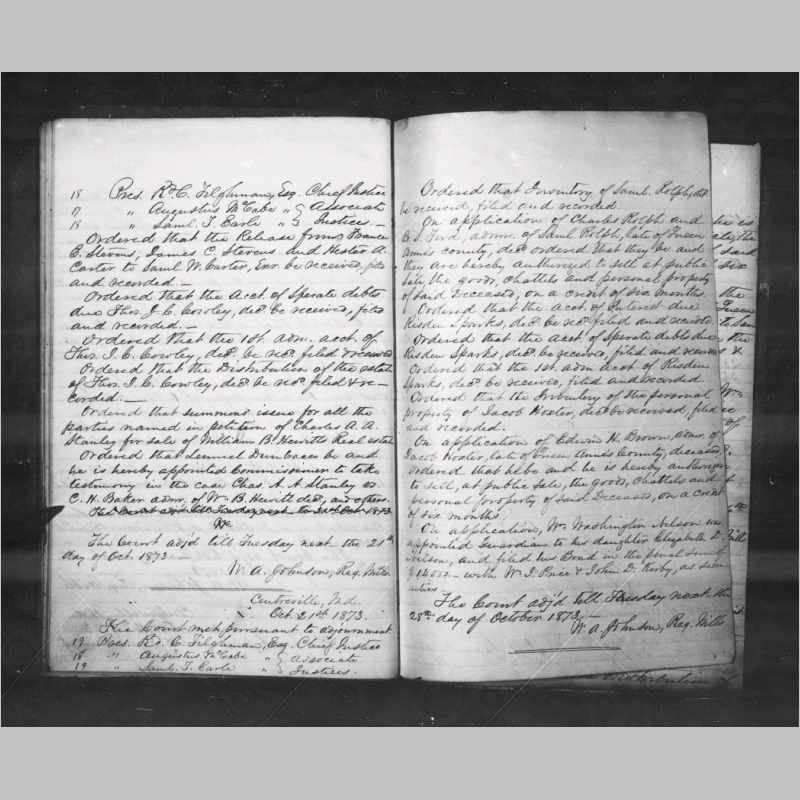 18 Pres. Rd. C. Tilghman, Esq. Chief Justice
17 " Augustus McCabe " } Associate
18 " Saml. T. Earle " } Justices. —
Ordered that the Release from France
E. Stevens, James C. Stevens and Hester A.
Carter to Saml W. Carter, Exr. be received, filed
and recorded. —
Ordered that the Acct. of Sperate debts
due Thos. I. C. Cowley, decd. be received, filed
and recorded. —
Ordered that the 1st. adm. acct. of
Thos. I. C. Cowley, decd. be recd. filed & recorded
Ordered that the Distribution of the estate
of Thos. I. C. Cowley, decd. be recd. filed & re-
corded. —
Ordered that summons issue for all the
parties named in petition of Charles A. A.
Stanley for sale of William B. Hewitt Real estate
Ordered that Lemuel Duncaces be and
he is hereby appointed Commissioner to take
testimony in the case Chas. A. A. Stanley vs.
C. H. Baker admr. of Wm. B. Hewitt decd, and others.
The Court adj'd till Tuesday next the 21st Oct. 1873
The Court adj'd till Tuesday next the 21st
day of Oct. 1873
W. A. Johnson, Reg. Wills
Centreville, Md.
Oct. 21st 1873.
The Court met pursuant to adjournment.
19 Pres. Rd. C. Tilghman, Esq. Chief Justice
18 " Augustus McCabe " } Associate
19 " Saml. T. Earle " } Justices.
Ordered that Inventory of Saml. Rolph, decd
be received, filed and recorded.
On application of Charles Rolph and
B. S. Ford, admr. of Saml Rolph, late of Queen
Anne's county, decd. ordered that they be and
they are hereby authorized to sell at public
sale the goods, chattels and personal property
of said Deceased, on a credit of six months.
Ordered that the Acct. of Interest due
Risden Sparks, decd. be recd. filed and recorded.
Ordered that the acct. of Sperate debts due
Risden Sparks, decd. be received, filed and recorded
Ordered that the 1st. adm acct of Risden
Sparks, decd. be received, filed and recorded.
Ordered that the Inventory of the personal
property of Jacob Hoxter, decd. be received, filed
and recorded.
On application of Edwin H. Brown, admr. of
Jacob Hoxter, late of Queen Anne's County, deceased,
Ordered that he be and he is hereby authorized
to sell, at public sale, the goods, chattels and
personal property of said Deceased, on a credit
of six months
On application, Wm. Washington Nelson was
appointed Guardian to his daughter Elizabeth D.
Nelson, and filed his Bond in the penal sum of
$1400 — with Wm. I. Price & John D. Kirby, as secu
rities.
The Court adj'd till Tuesday next the
28th. day of October 1873.
W. A. Johnson, Reg. Wills